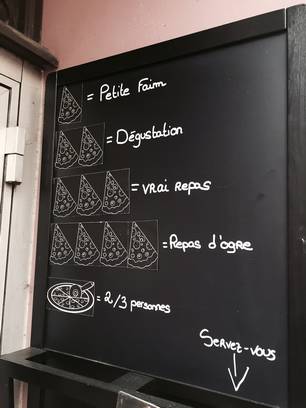 = Petite Faim
= Dégustation
= VRAI REPAS
= Repas d'ogre
= 2/3 personnes
SERVEZ-VOUS